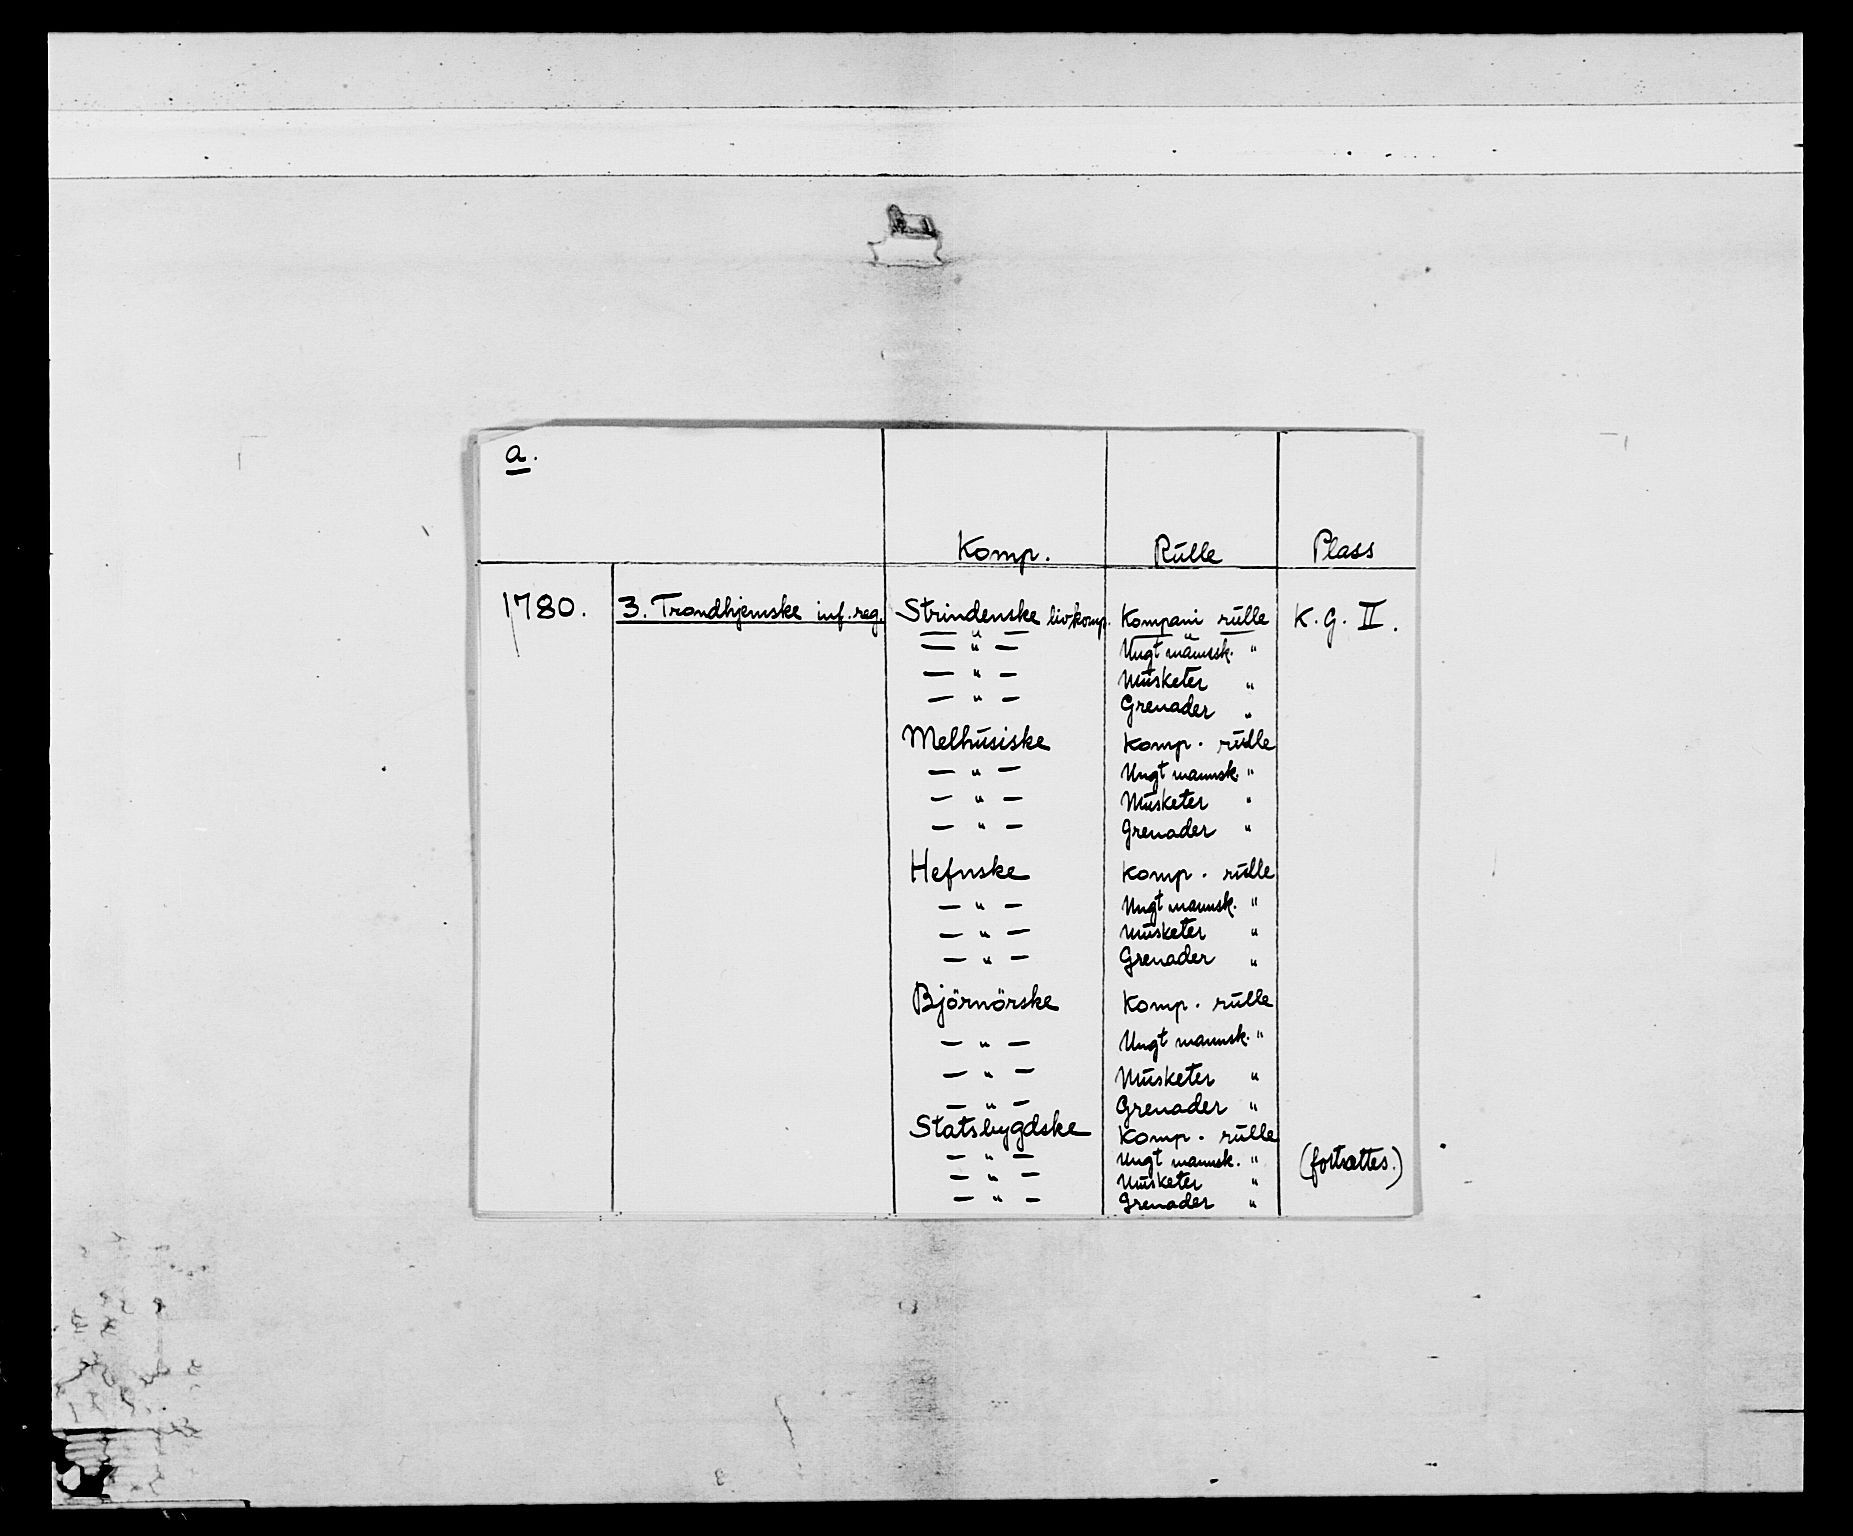 a.
Komp. Rulle Plass
1780. 3. Trondhjemske inf. reg. Strindenske livkomp. Kompani rulle K. G. II.
— " — — " —
— " — Ungt mannsk. "
— " — Musketer "
— " — Grenader "
Melhusiske Komp. rulle
— " — Ungt mannsk. "
— " — Musketer "
— " — Grenader "
Hefnske Komp. rulle
— " — Ungt mannsk. "
— " — Musketer "
— " — Grenader "
Björnörske Komp. rulle
— " — Ungt mannsk. "
— " — Musketer "
— " — Grenader "
Statsbygdske Komp. rulle
— " — Ungt mannsk. " (fortsættes.)
— " — Musketer "
— " — Grenader "